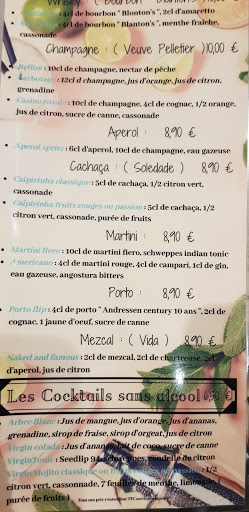 Whisky : ( Bourbon "Blanton's" )10,00 €
: 4cl de bourbon " Blanton's ", 2cl d'amaretto
: 4cl de bourbon " Blanton's ", menthe fraîche,
cassonade
Champagne : ( Veuve Pelletier )10,00 €
• Bellini : 10cl de champagne, nectar de pêche
Barbotage : 12cl d champagne, jus d'orange, jus de citron,
grenadine
• Casino royale : 10cl de champagne, 4cl de cognac, 1/2 orange,
jus de citron, sucre de canne, cassonade
Aperol : 8,90 €
• Aperol spritz : 6cl d'aperol, 10cl de champagne, eau gazeuse
Cachaça : ( Soledade ) 8,90 €
• Caipirinha classique : 5cl de cachaça, 1/2 citron vert,
cassonade
• Caipirinha fruits rouges ou passion : 5cl de cachaça, 1/2
citron vert, cassonade, purée de fruits
Martini : 8,90 €
• Martini fiero : 10cl de martini fiero, schweppes indian tonic
mericano : 4cl de martini rouge, 4cl de campari, 1cl de gin,
eau gazeuse, angostura bitters
Porto : 8,90 €
• Porto flip : 4cl de porto " Andressen century 10 ans ", 2cl de
cognac, 1 jaune d'oeuf, sucre de canne
Mezcal : ( Vida ) 8,90 €
Naked and famous : 2cl de mezcal, 2cl de chartreuse, 2cl
d'aperol, jus de citron
Les Cocktails sans alcool 6,90 €
Arbre Blanc : Jus de mangue, jus d'orange, jus d'ananas,
grenadine, sirop de fraise, sirop d'orgeat, jus de citron
Virgin colada : Jus d'ananas, lait de coco, sucre de canne
Virgin Tonic : Seedlip 94, schweppes, rondelle de citron
Virgin Mojito classique ou fruits rouges ou passion : 1/2
citron vert, cassonnade, 7 feuilles de menthe, limonade, (
purée de fruits )
Tous nos prix s'entendent TTC service compris